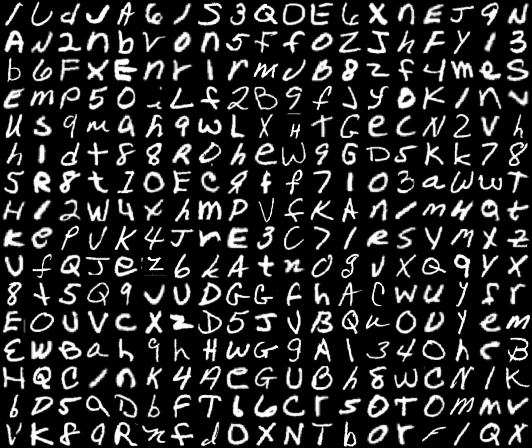 I U d J A 6 1 S 3 Q D E 6 X n E J 9 N
A N 2 n b V O n 5 F f O Z J h F Y 1 3
b 6 F X E n r 1 r m J B 8 z f 4 m e S
E m P 5 0 i L f 2 B 9 f J y O K 1 n v
U S 9 m a h 9 w L X H T G e C N 2 V h
h 1 d t 8 8 R O h e W 9 G D 5 K k 7 8
5 R 8 t I O E C 9 f f 7 1 0 3 a W w T
H 1 2 W 4 x h m P V f K A n 1 m H Q t
K e P U K 4 J r E 3 C 7 1 e S Y M X Z
U f Q J e Z 6 k A t n 0 g V X Q 9 Y X
8 t 5 Q 9 J U D G G f h A C W U Y f r
E O U V C X Z D 5 J V B Q u O U Y e m
E W B a h 9 h H W G 9 A 1 3 4 0 h C B
H Q C 1 n K 4 A C G U B h 8 W C N 1 K
b D 5 a D b F T 6 6 C r 5 0 T O m m v
V K 8 Q R n f d O X N T b O r F 1 Q X